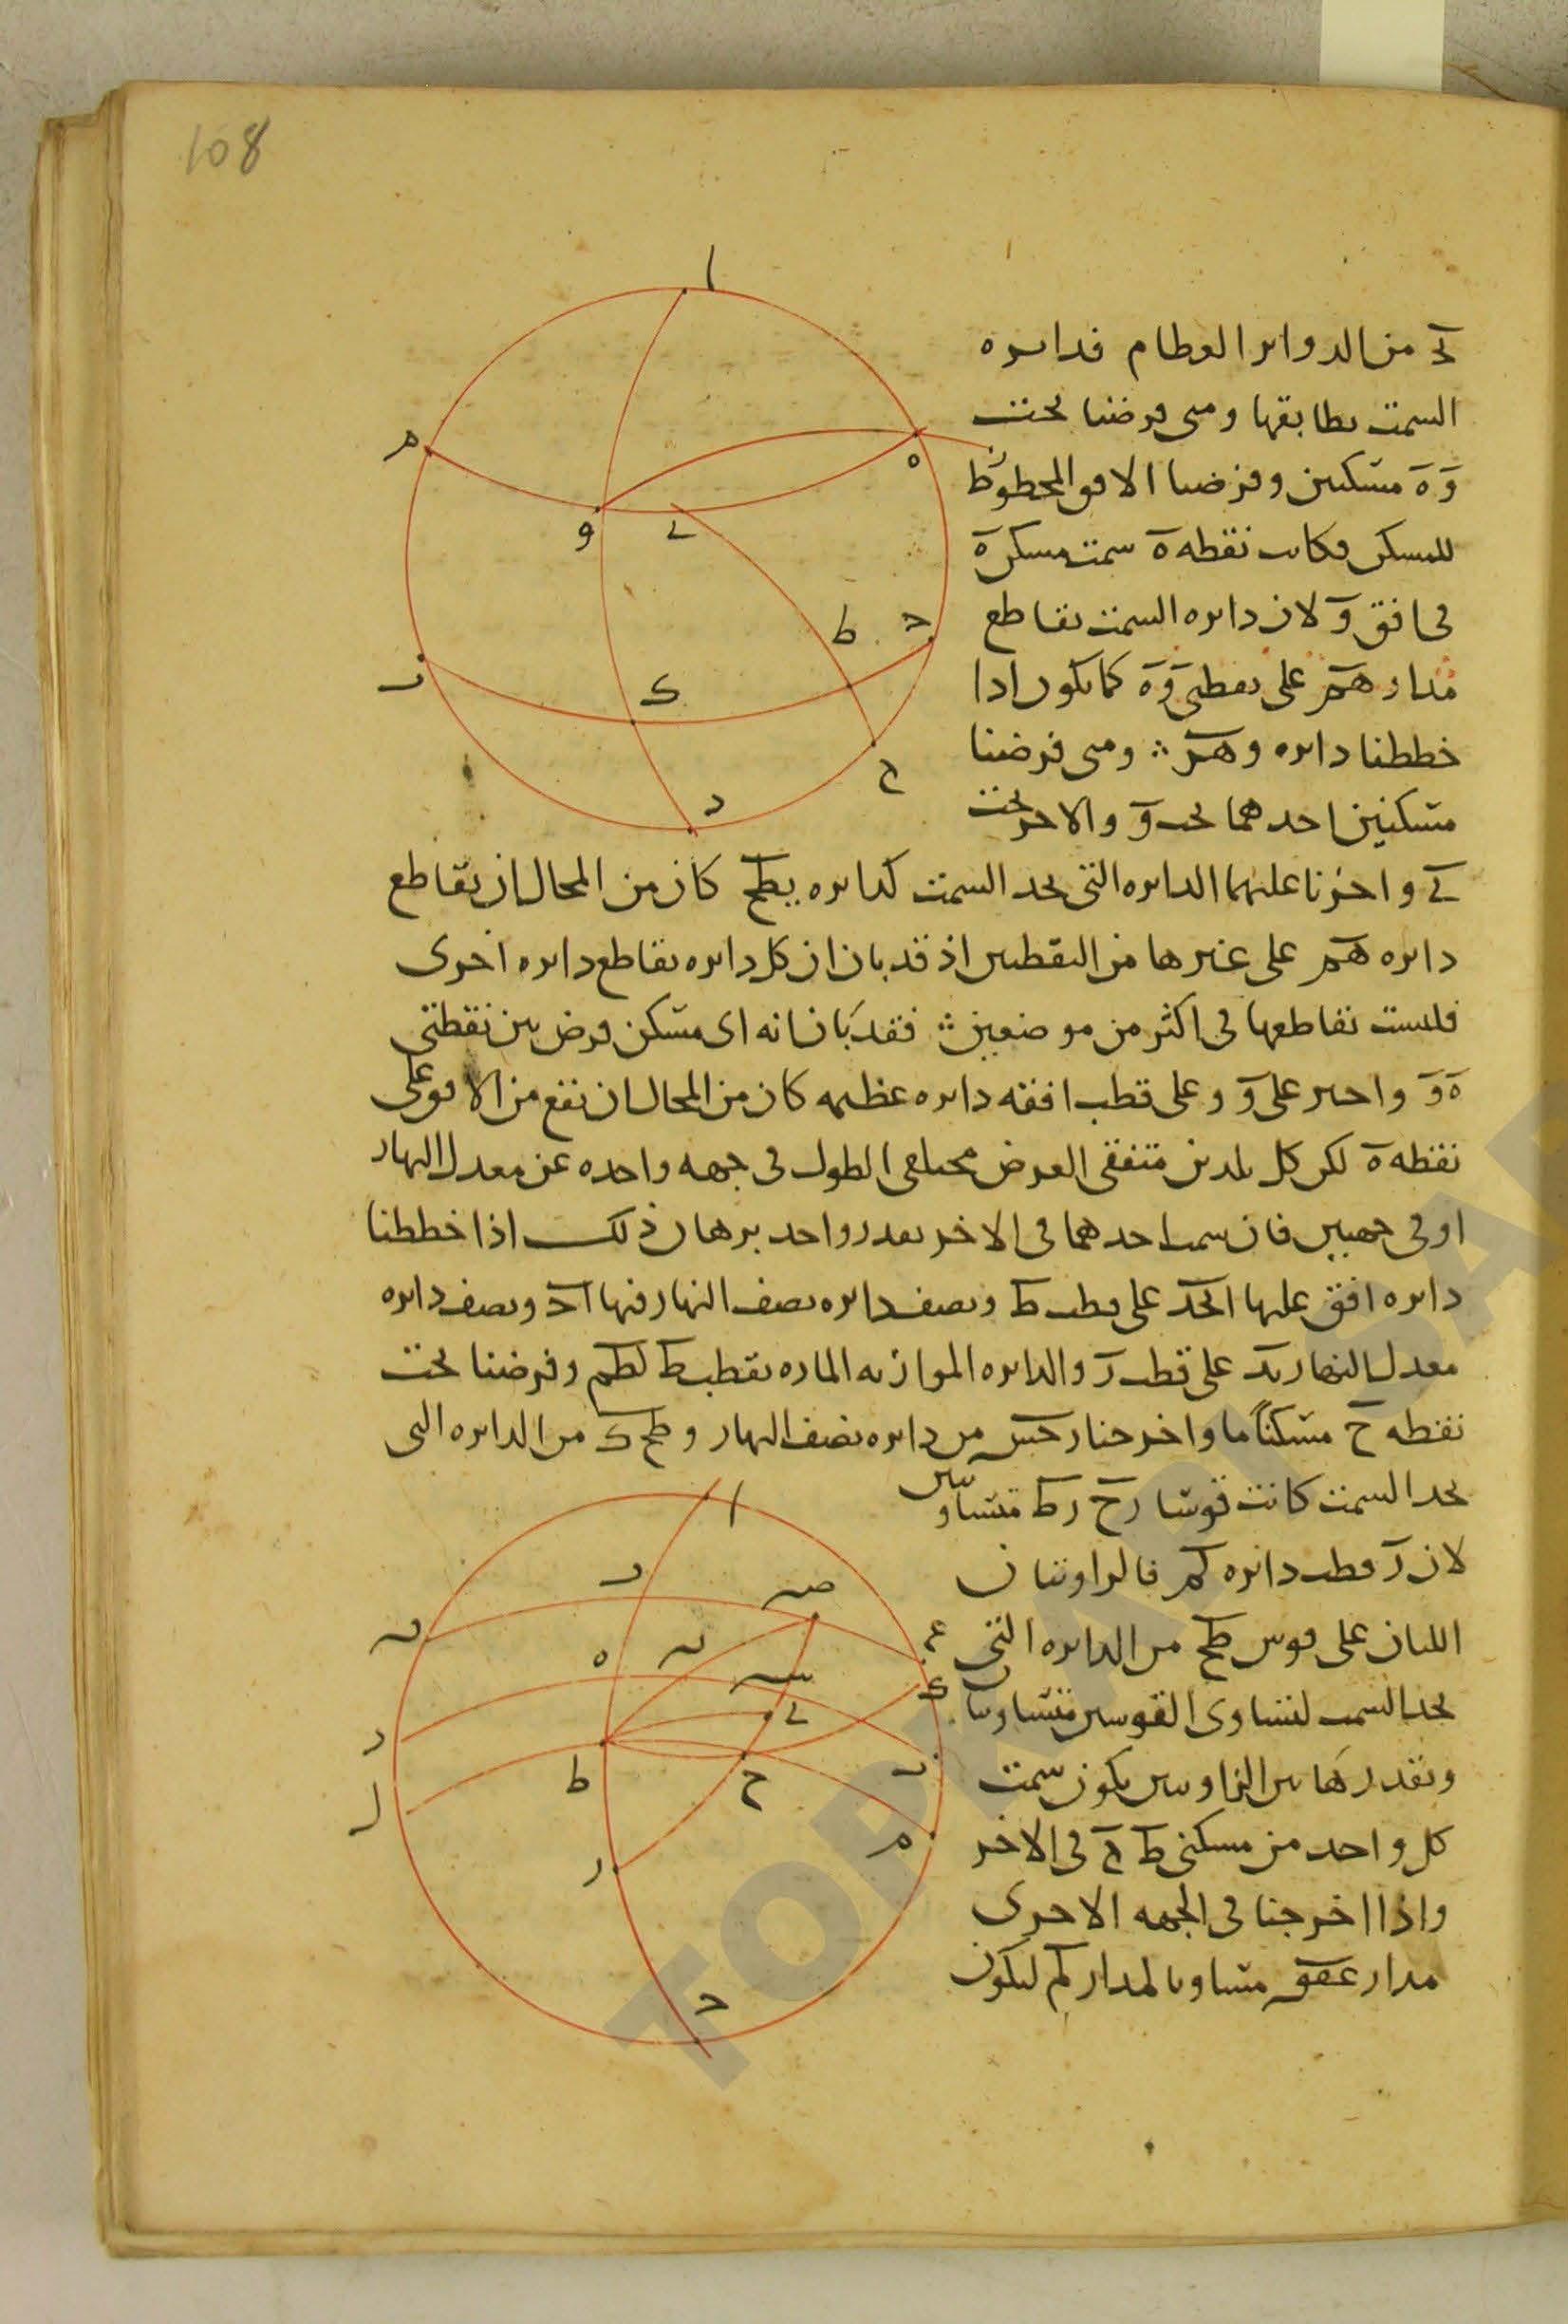 108
ا
م
ه
و
ي
ط
ج
ب
ك
ح
د
ى من الدوائر العظام فدائره
السمت يطابقها ومتى فرضنا تحت
و ه مسكنين وفرضنا الافق المخطوط
للمسكن وكانت نقطه ه سمت مسكن ه
فى افق و لان دائره السمت تقاطع
مدار هم على نقطتى و ه كما يكون اذا
خططنا دائره وهر ومتى فرضنا
مسكنين احدهما تحت و والاخر تحت
ى واجزنا عليهما الدائره التى تحد السمت كدائره يطح كان من المحال ان تقاطع
دائره هم على غيرها من النقطتين اذ قد بان ان كل دائره تقاطع دائره اخرى
فليست تقاطعها فى اكثر من موضعين فقد بان انه اى مسكن فرض بين نقطتى
ه و واجيز على و وعلى قطب افقه دائره عظيمه كان من المحال ان تقع من الافق على
نقطه ه لكن كل بلدين متفقى العرض مختلفى الطول فى جهه واحده عن معدل النهار
او فى جهتين فان سمت احدهما فى الاخر بقدر واحد برهان ذلك اذا خططنا
دائره افق عليها ابجد على قطب ط ونصف دائره نصف النهار فيها اج ونصف دائره
معدل النهار بد على قطب ر والدائره الموازيه الماره بقطب ط لطم وفرضنا تحت
نقطه ح مسكناً ما واخرجنا رحس من دائره نصف النهار وطح ك من الدائره التى
تحد السمت كانت قوسا رح رط متساويتين
لان ر قطب دائره لم فالزاويتان
اللتان على قوس طح من الدائره التى
تحد السمت لتساوى القوسين متساويتان
وبقدر هاتين الزاويتين يكون سمت
كل واحد من مسكنى ط ح فى الاخر
واذا اخرجنا فى الجهه الاخرى
مدار عفق مساويا لمدار لم ليكون
ا
ف
ص
ق
ع
ه
ن
س
ك
ي
د
ط
ح
ب
ل
م
ر
ج
TOPKAPI SA